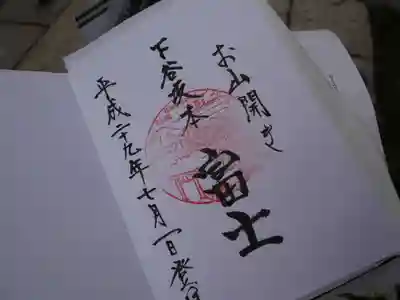 お山開き
富士
下谷坂本
平成二十九年七月一日登